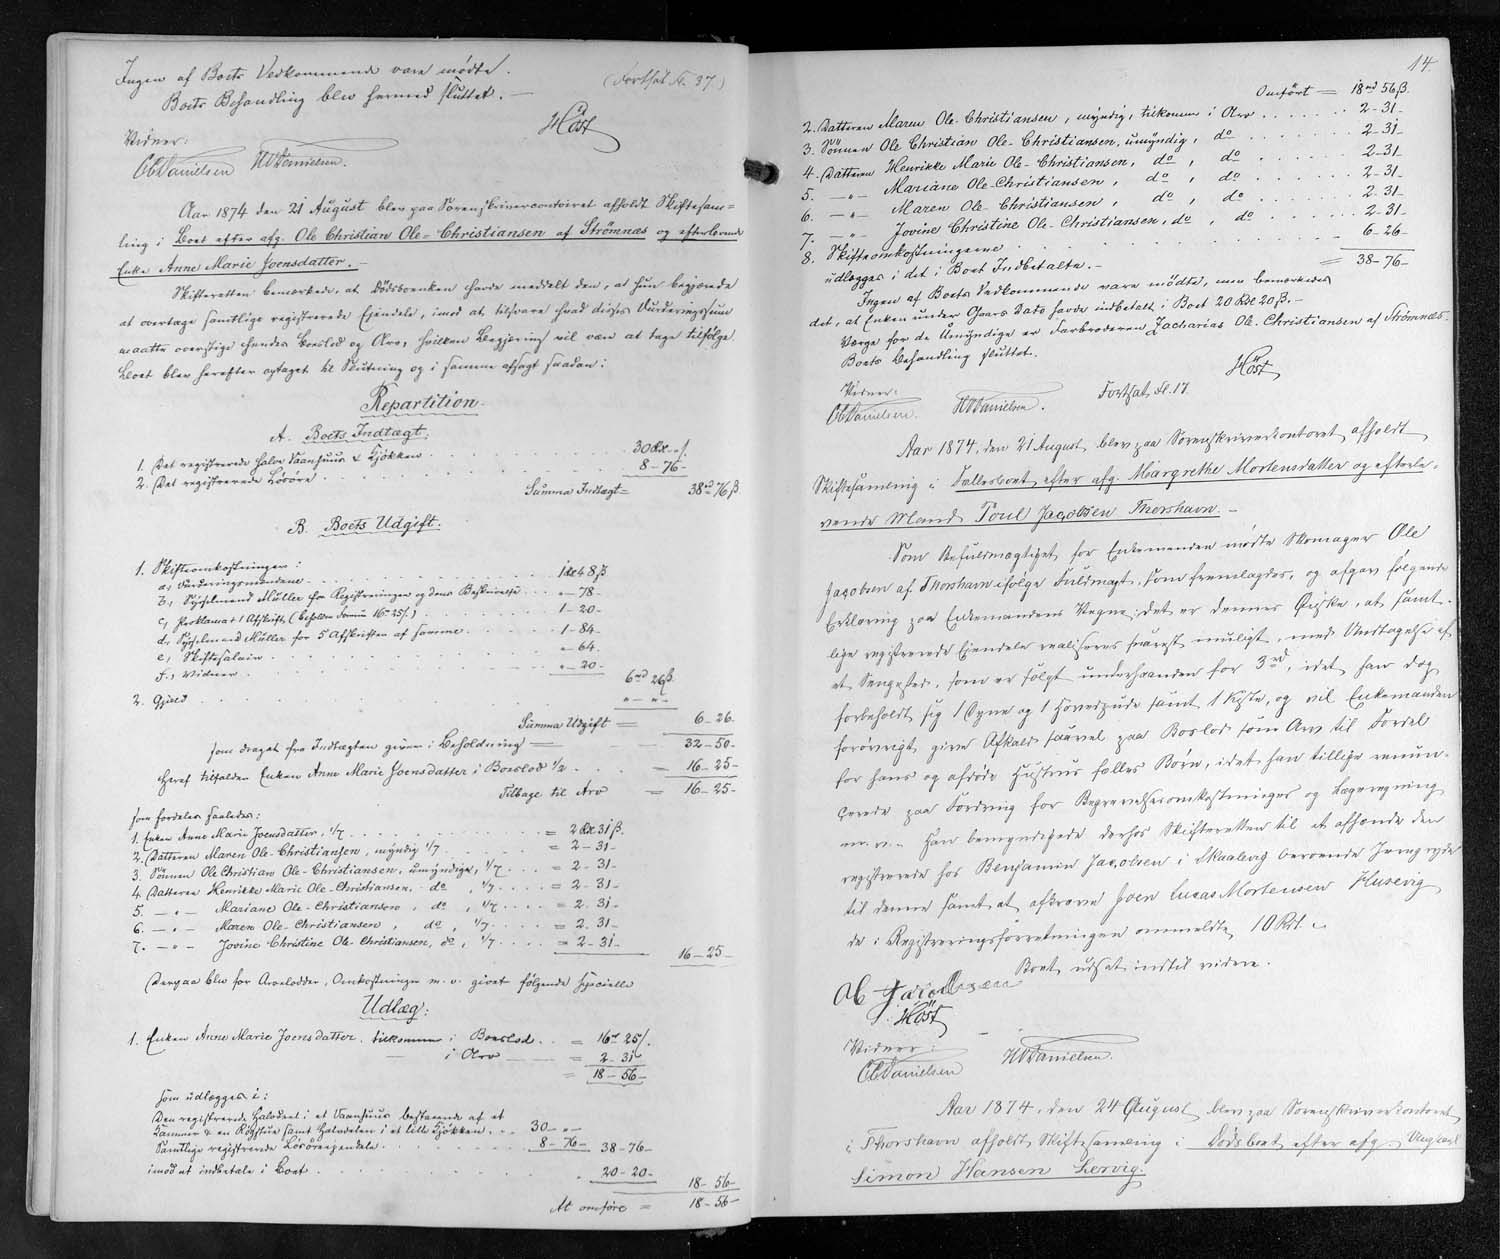 Ingen af Boets Vedkommende vare mødte.
(Fortsat Fl. 37.)
Boets Behandling blev hermed sluttet. —
Høst
Vidner:
Ob Danielsen HNDanielsen.
Aar 1874 den 21 August blev paa Sorenskrivercontoiret afholdt Skiftesam=
ling i Boet efter afg. Ole Christian Ole=Christiansen af Strømnæs og efterlevende
Enke Anne Marie Joensdatter. —
Skifteretten bemærkede, at Dødsboenken havde meddelt den, at hun begjærede
at overtage samtlige registrerede Eiendele, imod at tilsvare hvad disses Vurderingssum
maatte overstige hendes Boeslod og Arv, hvilken Begjæring vil være at tage tilfølge.
Boet blev herefter optaget til Slutning og i samme afsagt saadan:
Repartition.
A. Boets Indtægt.
1. Det registrerede halve Vaanhuus & Kjøkken . . . 30 Rd. - ß.
2. Det registrerede Løsøre . . . 8 - 76 -
Summa Indtægt = 38 rd 76 ß.
B. Boets Udgift.
1. Skifteomkostninger:
a, Vurderingsmændene . . . 1 rd 48 ß
b, Sysselmand Müller for Registreringen og dens Beskrivelse . . . " - 78 -
c, Proklama + 1 Afskrift (befalede Somme 16 - 25 ß.) . . . 1 - 20 -
d, Sysselmand Müller for 5 Afskriften af samme . . . 1 - 84 -
e, Skiftesalair . . . " - 64 -
f, Vidner . . . " - 20 -
6 rd 26 ß.
2. Gjæld . . . " - " -
Summa Udgift = 6 - 26 -
som draget fra Indtægten giver i Beholdning = 32 - 50 -
Heraf tilfalder Enken Anne Marie Joensdatter i Boeslod 1/2 . . . = 16 - 25 -
Tilbage til Arv = 16 - 25 -
som fordeles saaledes:
1. Enken Anne Marie Joensdatter, 1/7 . . . = 2 Rd 31 ß.
2. Datteren Maren Ole-Christiansen, myndig 1/7 . . . = 2 - 31 -
3. Sønnen Ole Christian Ole-Christiansen, umyndige, 1/7 . . . = 2 - 31 -
4. Datteren Henrikke Marie Ole-Christiansen, do , 1/7 . . . = 2 - 31 -
5. — " — Mariane Ole-Christiansen , do , 1/7 . . . = 2 - 31 -
6. — " — Maren Ole-Christiansen , do , 1/7 . . . = 2 - 31 -
7. — " — Jovine Christine Ole-Christiansen, do , 1/7 . . . = 2 - 31 -
16 - 25 -
Derpaa blev for Arvelodder, Omkostninger m. v. givet følgende specielle
Udlæg:
1. Enken Anne Marie Joensdatter tilkommer i Boeslod . . = 16 rd 25 ß.
— i Arv — = 2 - 31 -
= 18 - 56 -
som udlægges i:
Den registrerede Halvdeel i et Vaanhuus bestaaende af et
Kammer & en Røgstue samt Halvdelen i et lille Kjøkken . . 30 - " -
Samtlige registrerede Løsøreeiendele . . . 8 - 76 - 38 - 76 -
imod at indbetale i Boet . . . 20 - 20 -
18 - 56 -
At omføre = 18 - 56 -
14.
Omført = 18 rd 56 ß.
2. Datteren Maren Ole-Christiansen, myndig, tilkommer i Arv . . . 2 - 31 -
3. Sønnen Ole Christian Ole-Christiansen, umyndig, do . . . 2 - 31 -
4. Datteren Henrikke Marie Ole-Christiansen, do , do . . . 2 - 31 -
5. — " — Mariane Ole-Christiansen , do , do . . . 2 - 31 -
6. — " — Maren Ole-Christiansen , do , do . . . 2 - 31 -
7. — " — Jovine Christine Ole-Christiansen, do , do . . . 2 - 31 -
8. Skifteomkostningerne . . . 6 - 26 -
udlægges i det i Boet Indbetalte. — = 38 - 76 -
Ingen af Boets Vedkommende vare mødte, men bemærkedes
det, at Enken under Gaars Dato havde indbetalt i Boet 20 Rd 20 ß. —
Værge for de Umyndige er Farbroderen Zacharias Ole-Christiansen af Strømnæs.
Boets Behandling sluttet.
Høst
Vidner:
Ob Danielsen. HNDanielsen. Fortsat Fl. 17.
Aar 1874, den 21 August, blev paa Sorenskriverkontoret afholdt
Skiftesamling i Fællesboet efter afg. Margrethe Mortensdatter og efterle=
vende Mand Poul Jacobsen Thorshavn. —
Som Befuldmægtiget for Enkemanden mødte Skomager Ole
Jacobsen af Thorshavn ifølge Fuldmagt, som fremlagdes, og afgav følgende
Erklæring paa Enkemandens Vegne: det er dennes Ønske, at samt-
lige registrerede Eiendele realiseres snarest muligt, med Undtagelse af
et Sengested, som er solgt underhaanden for 3 rd, idet han dog
forbeholdt sig 1 Dyne og 1 Hovedpude samt 1 Kiste, og vil Enkemanden
forøvrigt give Afkald saavel paa Boslod som Arv til Fordel
for hans og afdøde Hustrus fælles Børn, idet han tillige renun-
cerede paa Fordring for Begravelsesomkostninger og Lægeregning
m. v. — Han bemyndigede derhos Skifteretten til at afhænde den
registrerede hos Benjamin Jacobsen i Skaalevig beroende
til denne samt at afkræve Joen Lucas Mortensen Husevig
de i Registreringsforretningen ommeldte 10 Rd.
Boet udsat indtil videre.
Ob Jacobsen
Høst
Vidner:
Ob Danielsen HNDanielsen.
Aar 1874, den 24 August blev paa Sorenskriverkontoret
i Thorshavn afholdt Skiftesamling i Dødsboet efter afg. Ungkarl
Simon Hansen Lervig.